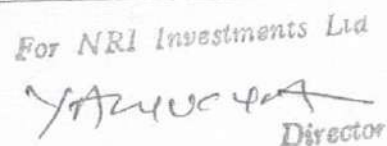 For NRI Investments Ltd
Director